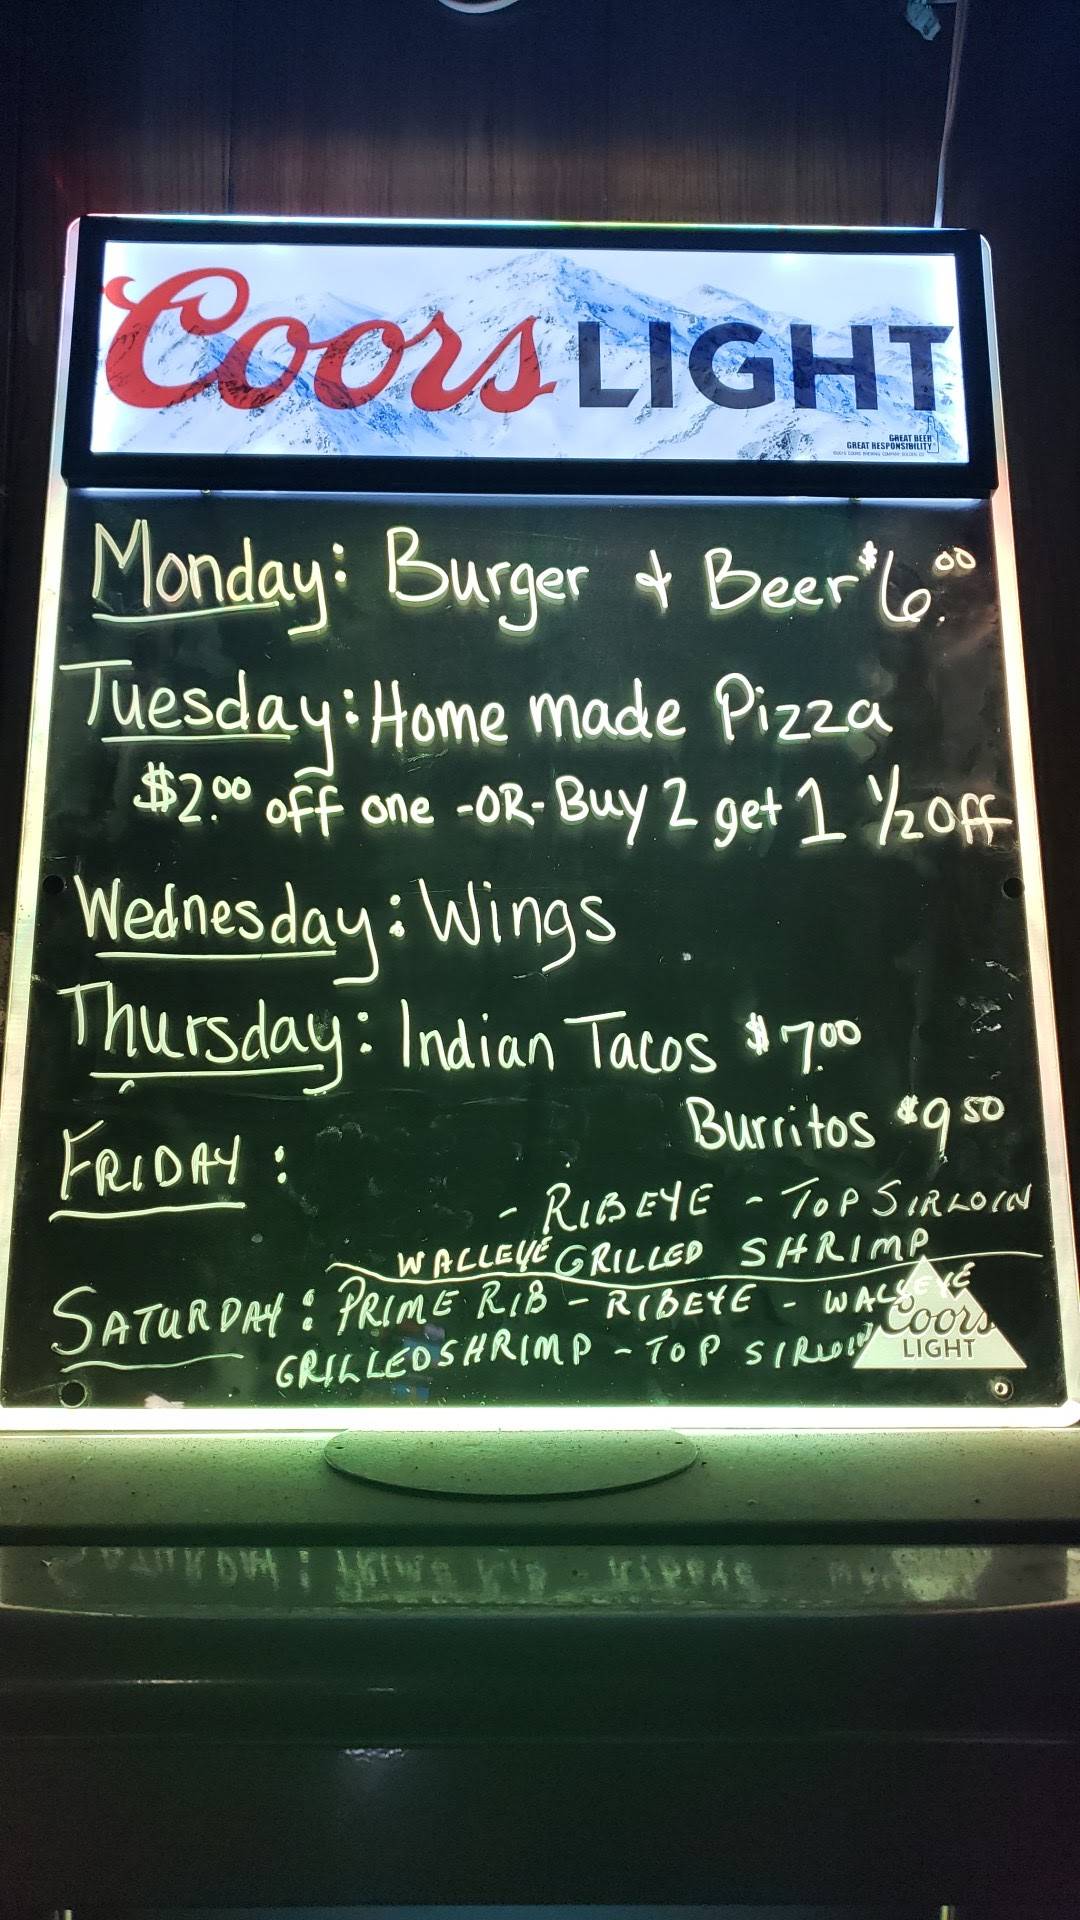 Coors LIGHT
GREAT BEER
GREAT RESPONSIBILITY
Monday: Burger & Beer $6.00
Tuesday: Home made Pizza
$2.00 off one -OR- Buy 2 get 1 1/2 off
Wednesday: Wings
Thursday: Indian Tacos $7.00
Burritos $9 50
FRIDAY:
- RIBEYE - TOP SIRLOIN
WALLEYE GRILLED SHRIMP
SATURDAY: PRIME RIB - RIBEYE - WALLEYE
GRILLED SHRIMP - TOP SIRLOIN
Coors
LIGHT